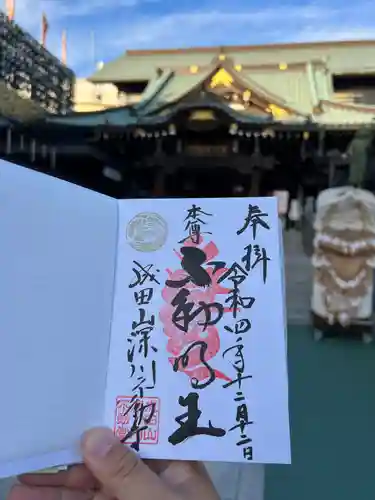 奉拝
令和四年十二月二日
本尊
不動明王
成田山深川不動